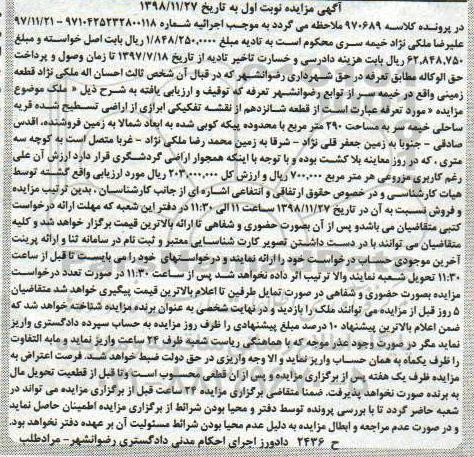 آگهی مزایده نوبت اول به تاریخ ۱۳۹۸/۱۱/۲۷
در پرونده کلاسه ۹۷۰۶۸۹ ملاحظه می گردد به موجب اجرائیه شماره ۹۷۱۰۴۲۵۲۳۲۸۰۰۱۱۸ - ۹۷/۱۱/۲۱
علیرضا ملکی نژاد خیمه سری محکوم است به تادیه مبلغ ۱/۸۴۸/۲۵۰,۰۰۰ ریال بابت اصل خواسته و
۶۲,۸۴۸,۷۵۰ ریال بابت هزینه دادرسی و خسارت تاخیر تادیه از تاریخ ۱۳۹۷/۷/۱۸ تا زمان وصول و پرداخت
حق الوکاله مطابق تعرفه در حق شهرداری رضوانشهر که در قبال آن شخص ثالث احسان اله ملکی نژاد قطعه
زمینی واقع در خیمه سر از توابع رضوانشهر تعرفه که توقیف و ارزیابی یافته به شرح ذیل « ملک موضوع
مزایده « مورد تعرفه عبارتست از قطعه شانزدهم از نقشه تفکیکی ابرازی از اراضی تسطیح شده قریه
ساحلی خیمه سر به مساحت ۲۹۰ متر مربع با محدوده پیکه کوبی شده به ابعاد شمالا به زمین فروشنده، اقدس
صادقی - جنوبا به زمین جعفر قلی نژاد - شرقا به زمین محمد رضا ملکی نژاد - غربا متصل است به کوچه سه
متری ، که در روز معاینه بلا کشت بوده و با توجه با اینکه همجوار اراضی گردشگری قرار دارد ارزش آن علی
رغم کاربری مزروعی هر متر مربع ۷۰۰,۰۰۰ ریال و ارزش کل ۲۰۳,۰۰۰,۰۰۰ ریال مورد ارزیابی واقع گشته توسط
هیات کارشناسی و در خصوص حقوق ارتفاقی و انتفاعی اشاره ای از جانب کارشناسان ، بدین ترتیب مزایده
و فروش نسبت به آن در تاریخ ۱۳۹۸/۱۱/۲۷ ساعت ۱۱ الی ۱۱:۳۰ در دفتر این شعبه که مهلت ارائه درخواست
کتبی متقاضیان می باشدو پس از آن بصورت حضوری و شفاهی تا ارائه بالاترین قیمت برگزار خواهد شد و کلیه
متقاضیان می توانند با در دست داشتن تصویر کارت شناسایی معتبر و ثبت نام در سامانه ثنا و ارائه پرینت
آخرین موجودی حساب درخواست خود را ارائه نمایند و درخواستهای خود را می بایست تا قبل از ساعت
۱۱:۳۰ تحویل شعبه نمایند والا ترتیب اثر داده نخواهد شد پس از ساعت ۱۱:۳۰ در صورت تعدد درخواست
مزایده بصورت حضوری و شفاهی در صورت تمایل طرفین تا اعلام بالاترین قیمت پیگیری خواهد شد متقاضیان
۵ روز قبل از مزایده می توانند ملک را بازدید و در نهایت شخصی به عنوان برنده مزایده شناخته خواهد شد که
ضمن اعلام بالاترین پیشنهاد ۱۰ درصد مبلغ پیشنهادی را ظرف روز مزایده به حساب سپرده دادگستری واریز
نماید مگر در صورت وجود عذر موجه که با هماهنگی ریاست شعبه ظرف ساعت واریز نماید و مابه التفاوت
را ظرف یکماه به همان حساب واریز نماید و الا وجه واریزی در حق دولت ضبط خواهد شد. فرصت اعتراض به
مزایده ظرف یک هفته پس از برگزاری مزایده و پس از آن قطعی محسوب است وتا قبل از قطعیت تحویل مال
به برنده صورت نخواهد پذیرفت. ضمنا متقاضی برگزاری مزایده ۲۴ ساعت قبل از برگزاری مزایده می تواند در
شعبه حاضر گردد تا با بررسی پرونده توسط دفتر و محیا بودن شرائط از برگزاری مزایده اطمینان حاصل نماید
و در صورت عدم مراجعه و ابطال مزایده به دلیل عدم محیا بودن شرائط مسئولیت آن بر عهده دفتر نخواهد بود.
ح ۲۴۳۶ دادورز اجرای احکام مدنی دادگستری رضوانشهر- مرادطلب